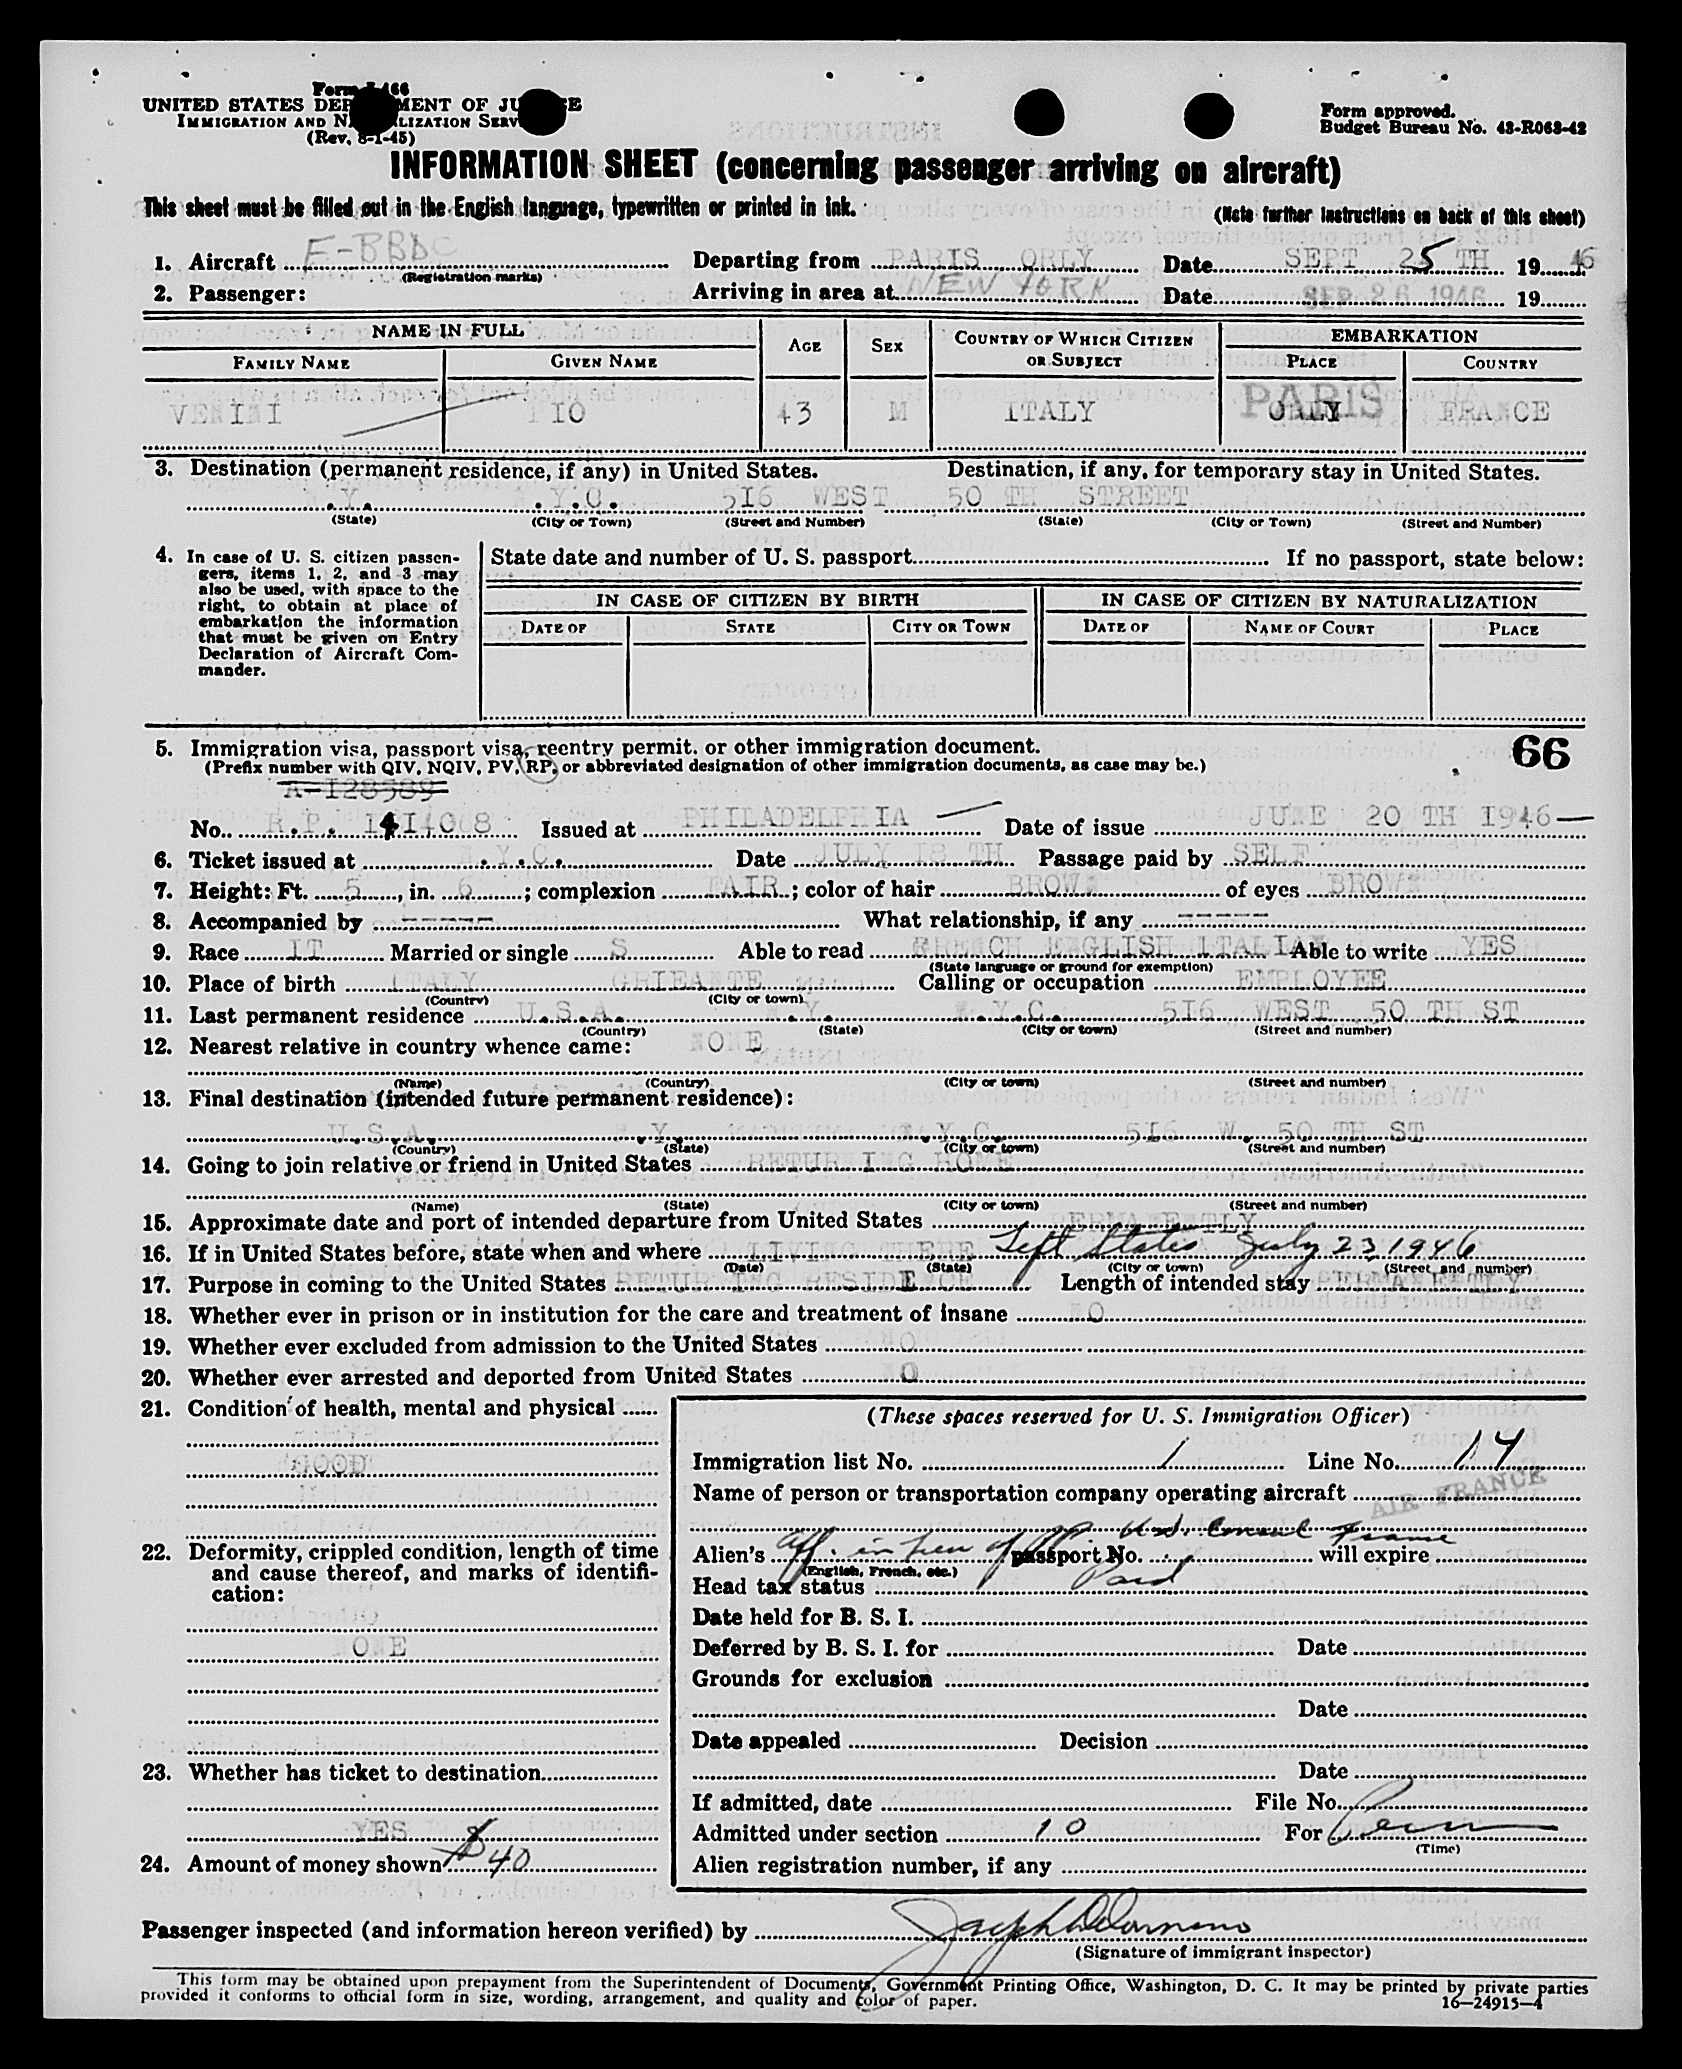 Form I-466
UNITED STATES DEPARTMENT OF JUSTICE
IMMIGRATION AND NATURALIZATION SERVICE
(Rev. 8-1-45)
Form approved.
Budget Bureau No. 43-R063-42
INFORMATION SHEET (concerning passenger arriving on aircraft)
This sheet must be filled out in the English language, typewritten or printed in ink.
(Note further instructions on back of this sheet)
1. Aircraft F-BBDC Departing from PARIS ORLY Date SEPT 25 TH 1946
(Registration marks)
2. Passenger: Arriving in area at NEW YORK Date SEP 26 1946 19
NAME IN FULL AGE SEX COUNTRY OF WHICH CITIZEN OR SUBJECT EMBARKATION
FAMILY NAME GIVEN NAME PLACE COUNTRY
VENINI PIO 43 M ITALY PARIS ORLY FRANCE
3. Destination (permanent residence, if any) in United States. Destination, if any, for temporary stay in United States.
N.Y. N.Y.C. 516 WEST 50 TH STREET
(State) (City or Town) (Street and Number) (State) (City or Town) (Street and Number)
4. In case of U. S. citizen passengers, items 1, 2, and 3 may also be used, with space to the right, to obtain at place of embarkation the information that must be given on Entry Declaration of Aircraft Commander.
State date and number of U. S. passport If no passport, state below:
IN CASE OF CITIZEN BY BIRTH IN CASE OF CITIZEN BY NATURALIZATION
DATE OF STATE CITY OR TOWN DATE OF NAME OF COURT PLACE
5. Immigration visa, passport visa, reentry permit, or other immigration document.
66
(Prefix number with QIV, NQIV, PV, RP, or abbreviated designation of other immigration documents, as case may be.)
A-128589
No. R.P. 1414008 Issued at PHILADELPHIA Date of issue JUNE 20 TH 1946
6. Ticket issued at N.Y.C. Date JULY 18 TH Passage paid by SELF
7. Height: Ft. 5, in. 6; complexion FAIR; color of hair BROWN of eyes BROWN
8. Accompanied by ----- What relationship, if any -----
9. Race IT Married or single S Able to read FRENCH ENGLISH ITALIAN Able to write YES
(State language or ground for exemption)
10. Place of birth ITALY GRIEANTE Calling or occupation EMPLOYEE
(Country) (City or town)
11. Last permanent residence U.S.A. N.Y. N.Y.C. 516 WEST 50 TH ST
(Country) (State) (City or town) (Street and number)
12. Nearest relative in country whence came: NONE
(Name) (Country) (City or town) (Street and number)
13. Final destination (intended future permanent residence):
U.S.A. N.Y. N.Y.C. 516 W. 50 TH ST
(Country) (State) (City or town) (Street and number)
14. Going to join relative or friend in United States RETURNING HOME
(Name) (State) (City or town) (Street and number)
15. Approximate date and port of intended departure from United States PERMANENTLY
16. If in United States before, state when and where LIVING THERE Left States July 23 1946
(Date) (State) (City or town) (Street and number)
17. Purpose in coming to the United States RETURNING RESIDENCE Length of intended stay PERMANENTLY
18. Whether ever in prison or in institution for the care and treatment of insane NO
19. Whether ever excluded from admission to the United States NO
20. Whether ever arrested and deported from United States NO
21. Condition of health, mental and physical
GOOD
22. Deformity, crippled condition, length of time and cause thereof, and marks of identification:
NONE
23. Whether has ticket to destination
YES
24. Amount of money shown $40
(These spaces reserved for U. S. Immigration Officer)
Immigration list No. 1 Line No. 14
Name of person or transportation company operating aircraft AIR FRANCE
U.S. Consul France
Alien's Aff. in lieu of PP. passport No. will expire
(English, French, etc.)
Head tax status Paid
Date held for B. S. I.
Deferred by B. S. I. for Date
Grounds for exclusion
Date
Date appealed Decision
Date
If admitted, date File No.
Admitted under section 10 For Perm
(Time)
Alien registration number, if any
Passenger inspected (and information hereon verified) by
(Signature of immigrant inspector)
This form may be obtained upon prepayment from the Superintendent of Documents, Government Printing Office, Washington, D. C. It may be printed by private parties
provided it conforms to official form in size, wording, arrangement, and quality and color of paper.
16—24915-4